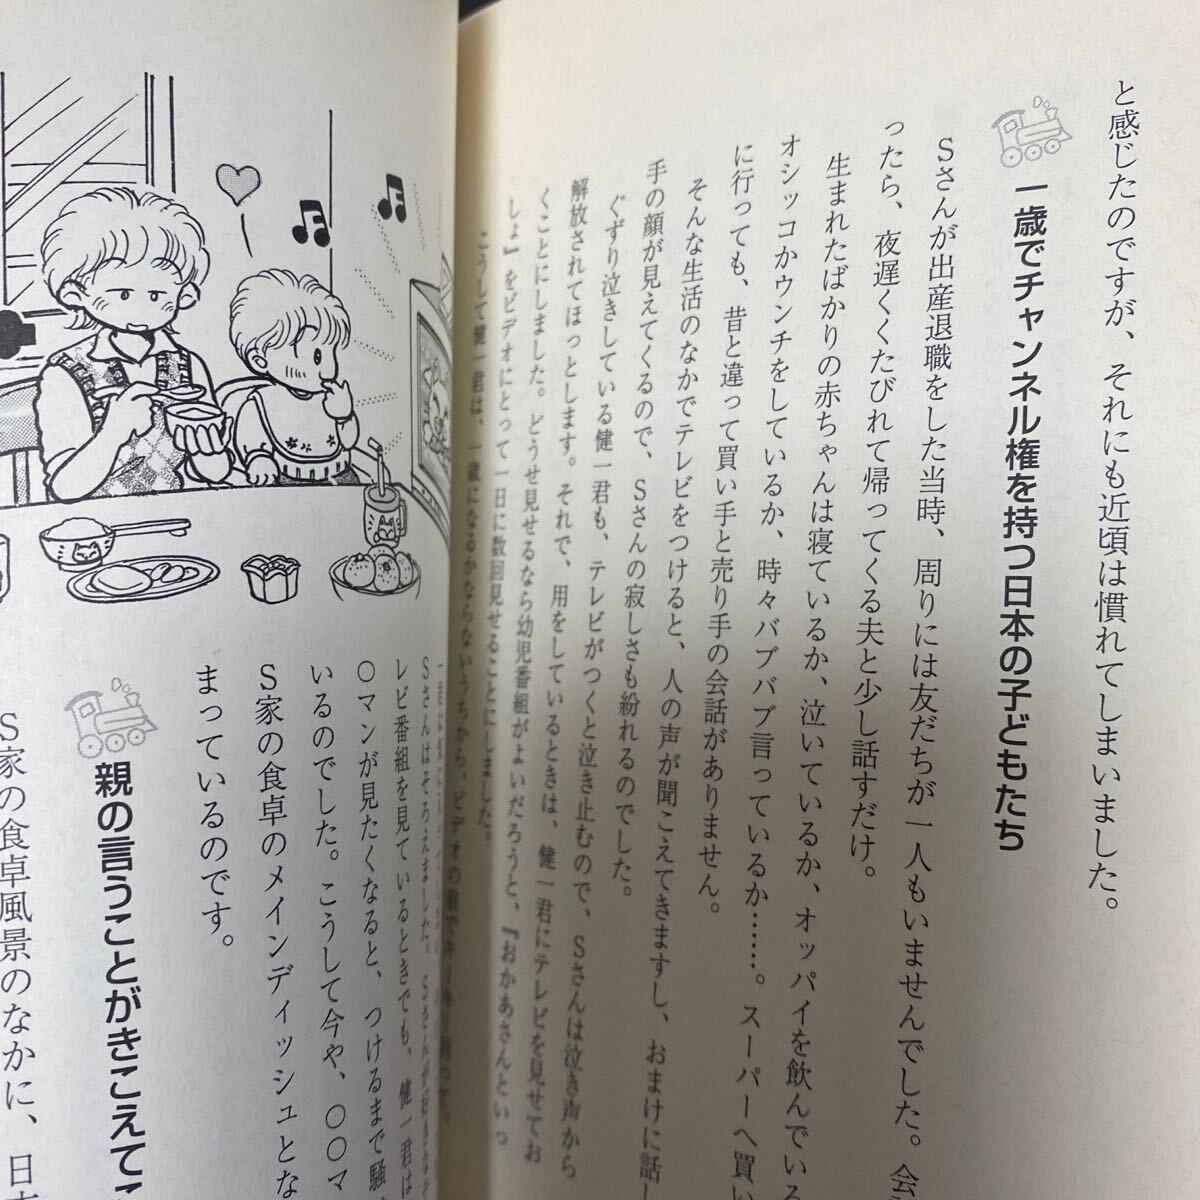 と感じたのですが、それにも近頃は慣れてしまいました。
一歳でチャンネル権を持つ日本の子どもたち
Sさんが出産退職をした当時、周りには友だちが一人もいませんでした。会
ったら、夜遅くくたびれて帰ってくる夫と少し話すだけ。
生まれたばかりの赤ちゃんは寝ているか、泣いているか、オッパイを飲んでいる
オシッコかウンチをしているか、時々バブバブ言っているか……。スーパーへ買い
に行っても、昔と違って買い手と売り手の会話がありません。
そんな生活のなかでテレビをつけると、人の声が聞こえてきますし、おまけに話し
手の顔が見えてくるので、Sさんの寂しさも紛れるのでした。
ぐずり泣きしている健一君も、テレビがつくと泣き止むので、Sさんは泣き声から
解放されてほっとします。それで、用をしているときは、健一君にテレビを見せてお
くことにしました。どうせ見せるなら幼児番組がよいだろうと、『おかあさんといっ
しょ』をビデオにとって一日に数回見せることにしました。
こうして健一君は、一歳になるかならないうちから、ビデオの前で
Sさんはそろえました。Sさんが好きなテ
レビ番組を見ているときでも、健一君は
〇マンが見たくなると、つけるまで騒
いるのでした。こうして今や、〇〇マ
S家の食卓のメインディッシュとな
まっているのです。
親の言うことがきこえてこ
S家の食卓風景のなかに、日本